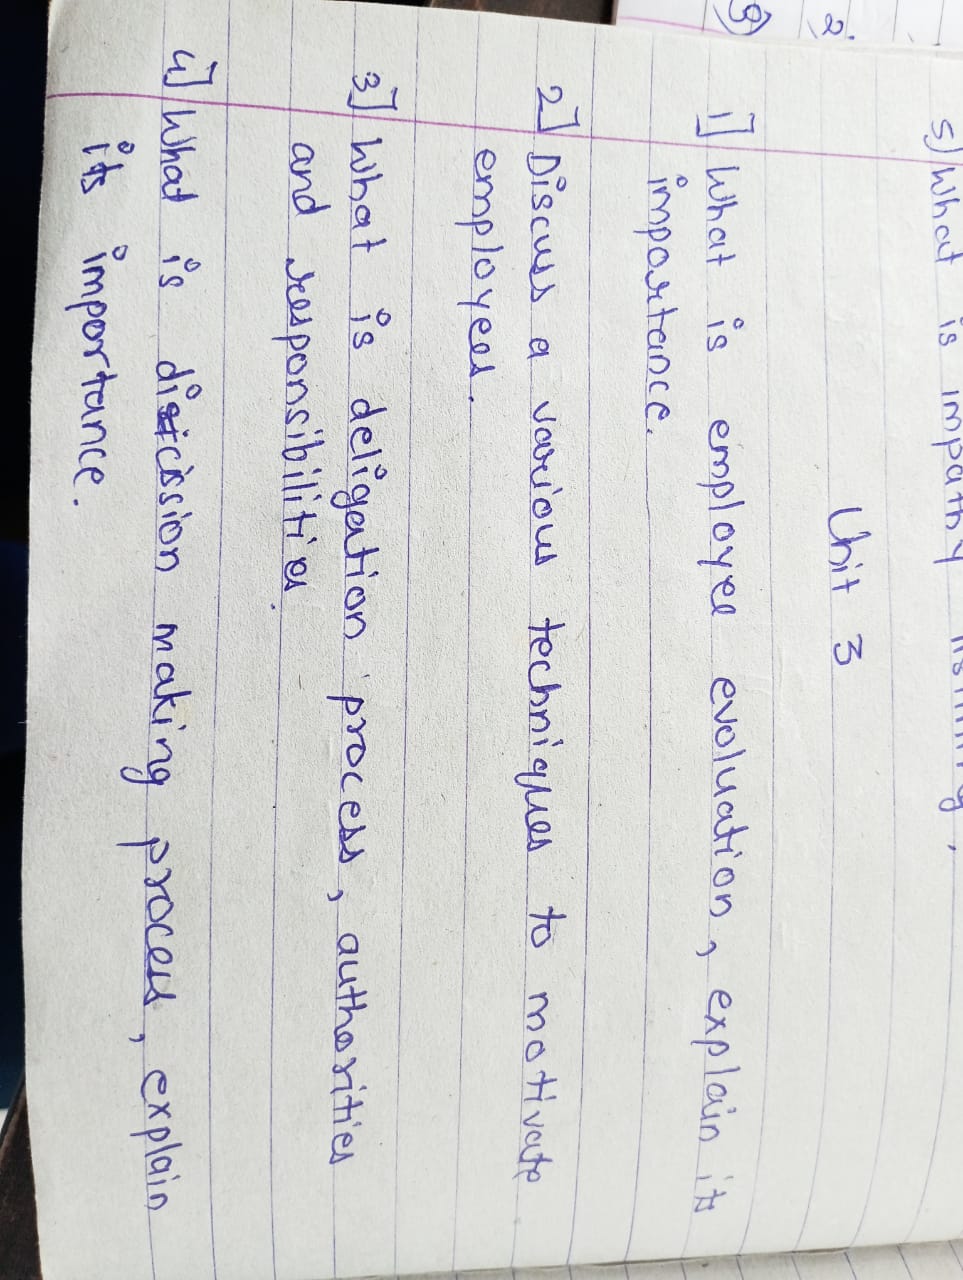 5) What is impathy
Unit 3
2)
3)
1] What is employee evoluation, explain its
importance.
2] Discuss a various techniques to motivate
employees.
3] What is deligation process, authorities
and responsibilities.
4] What is discission making process, explain
its importance.